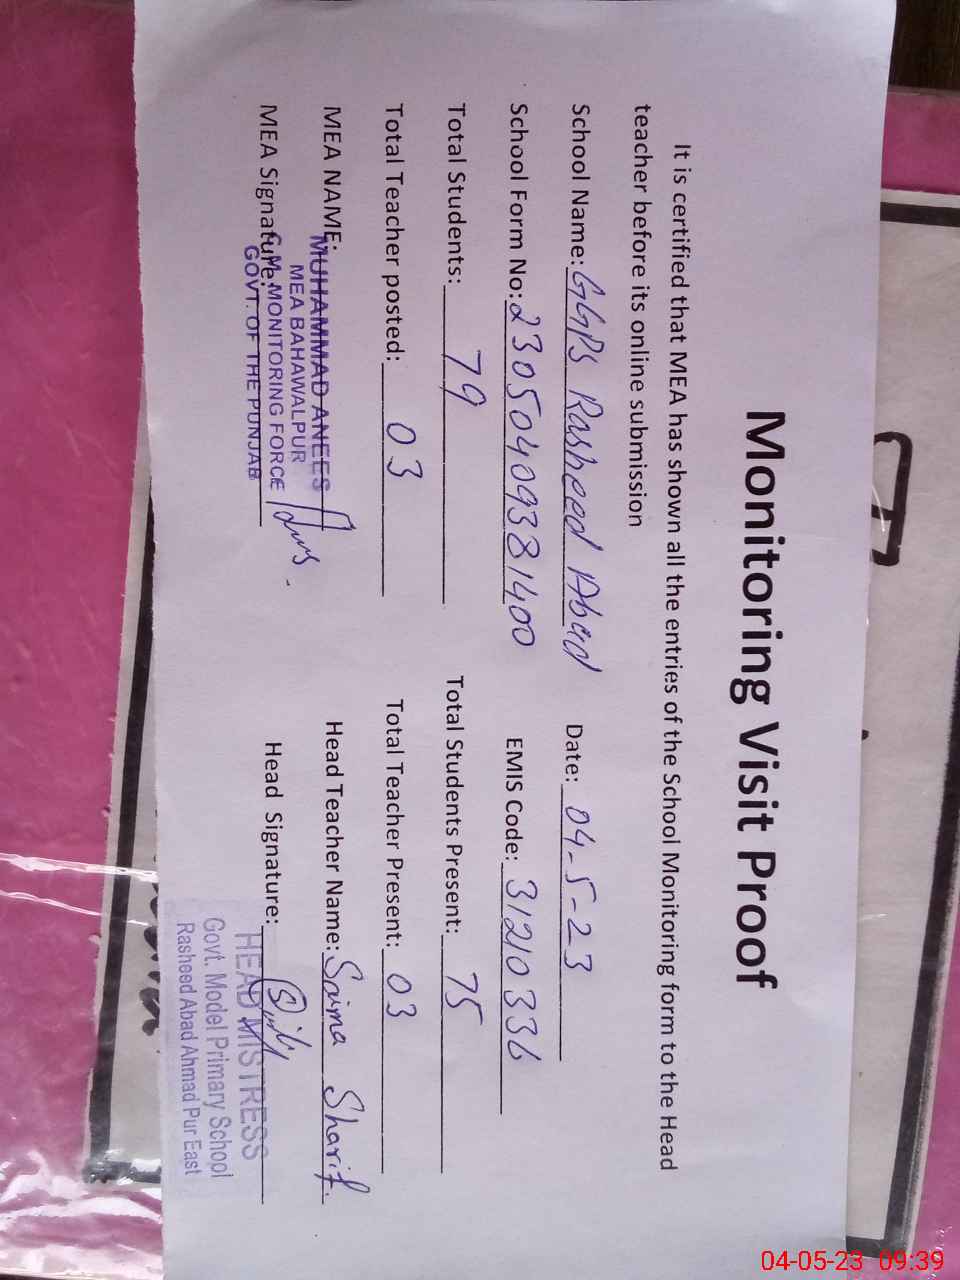 Monitoring Visit Proof
It is certified that MEA has shown all the entries of the School Monitoring form to the Head
teacher before its online submission
School Name: GGPS Rasheed Abad Date: 04-5-23
School Form No: 23050409381400 EMIS Code: 31210336
Total Students: 79 Total Students Present: 75
Total Teacher posted: 03 Total Teacher Present: 03
MEA NAME: Head Teacher Name: Saima Sharif.
MUHAMMAD ANEES
MEA BAHAWALPUR
MEA Signature: Head Signature:
C.M. MONITORING FORCE
GOVT. OF THE PUNJAB
HEAD MISTRESS
Govt. Model Primary School
Rasheed Abad Ahmad Pur East
04-05-23 09:39